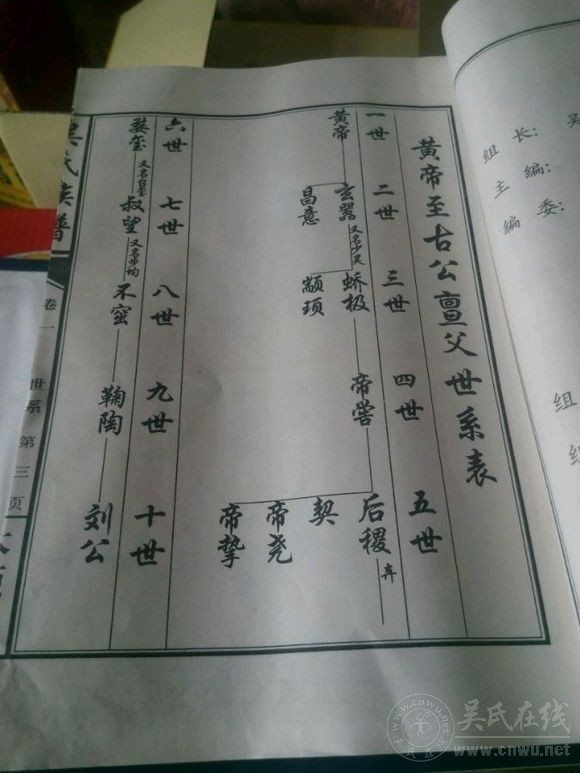 组长: 吴
主编:
编委:
组
黄帝至古公亶父世系表
一世 二世 三世 四世 五世
黄帝 玄嚣 又名少昊 蟜极 帝喾 后稷 弃
昌意 颛顼 契
帝尧
帝挚
六世 七世 八世 九世 十世
婺玺 又名台玺 叔望 又名步均 不窋 鞠陶 刘公
吴氏族谱 卷一 世系 第三页
吴氏在线
www.cnwu.net